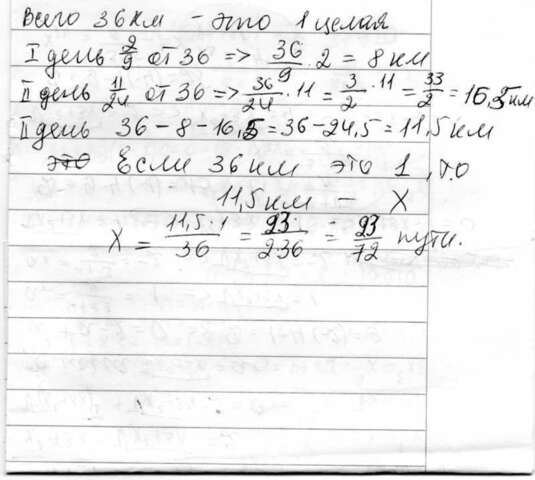 Всего 36 км - это 1 целая
I день 2/9 от 36 => 36/9 · 2 = 8 км
II день 11/24 от 36 => 36/24 · 11 = 3/2 · 11 = 33/2 = 16,5 км
II день 36 - 8 - 16,5 = 36 - 24,5 = 11,5 км
Если 36 км это 1, то
11,5 км - X
X = 11,5·1/36 = 23/2·36 = 23/72 пути.